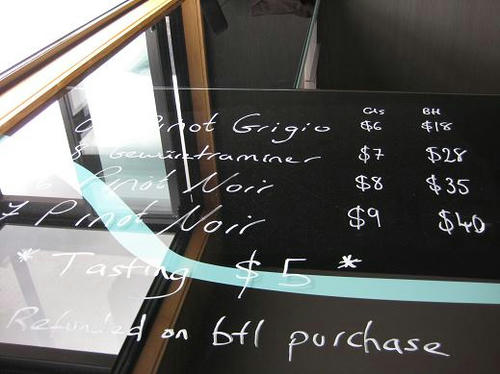 Gls Btl
Pinot Grigio $6 $18
8 Gewürztraminer $7 $28
6 Pinot Noir $8 $35
7 Pinot Noir $9 $40
* Tasting $5 *
Refunded on btl purchase